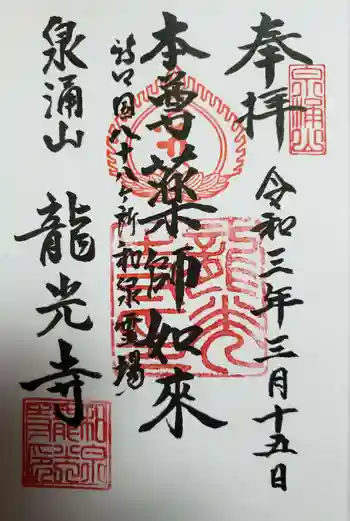 奉拝
令和三年三月十五日
本尊薬師如来
四国八十八ヶ所和泉霊場
泉涌山
龍光寺